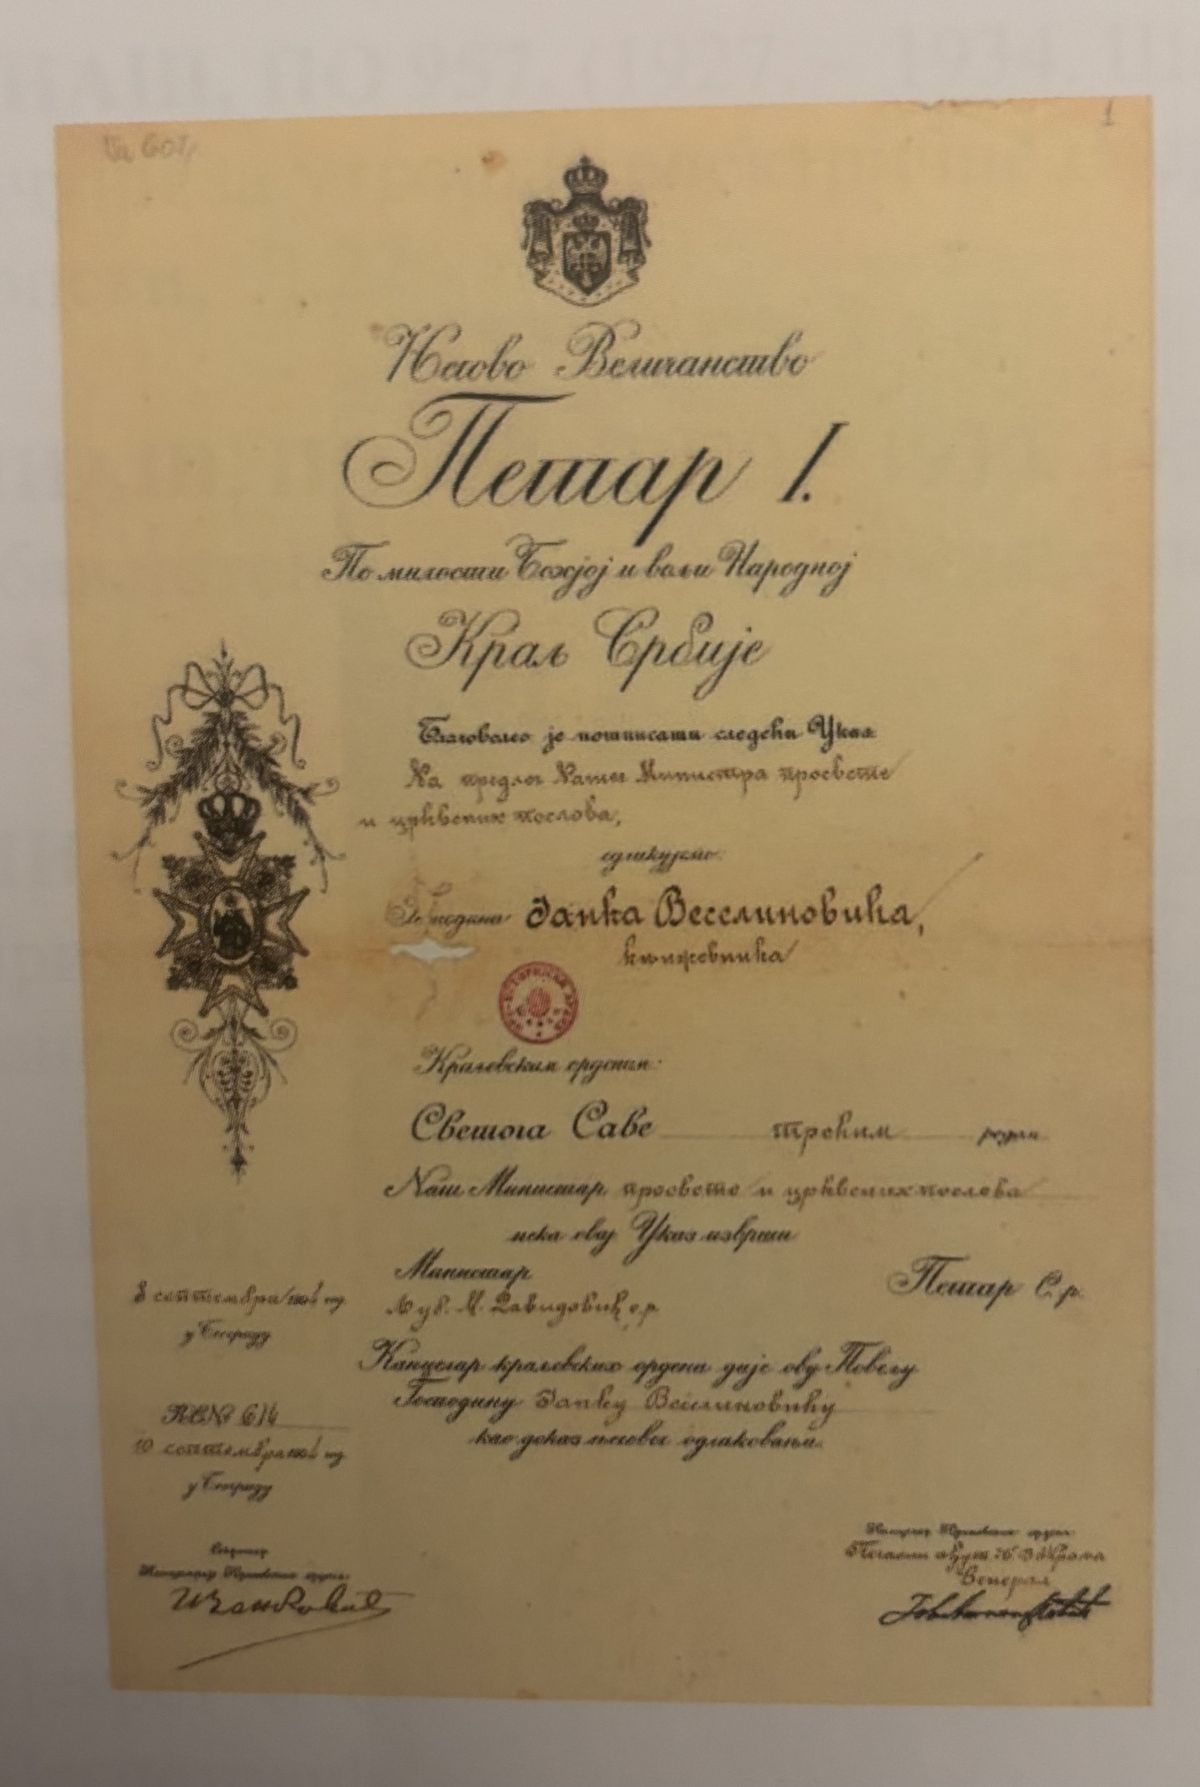 1
Његово Величанство
Петар I.
По милости Божјој и вољи Народној
Краљ Србије
Благоволео је потписати следећи Указ:
На предлог Нашег Министра просвете
и црквених послова,
одликујемо:
Господина Јанка Веселиновића,
књижевника
Краљевским орденом:
Светога Саве трећим редом
Наш Министар просвете и црквених послова
нека овај Указ изврши
Министар
Љуб. М. Давидовић с.р.
Петар С.р.
8 септембра год.
у Београду
Канцелар краљевских ордена даје ову Повељу
Господину Јанку Веселиновићу
као доказ његовог одликовања.
№ 614
10 септембра год.
у Београду
Секретар
Канцелар Краљевских ордена
Генерал